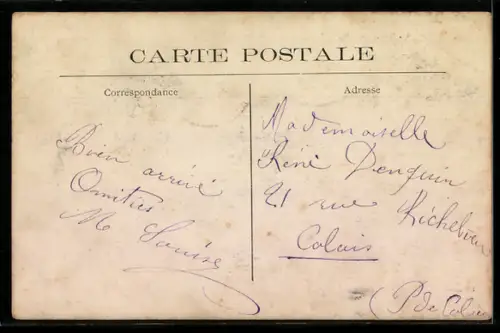 CARTE POSTALE
Correspondance
Bien arrivé
Amitiés
M Louise
Adresse
Mademoiselle
Réné Denquin
21 rue Richelieu
Calais
(P de Calais